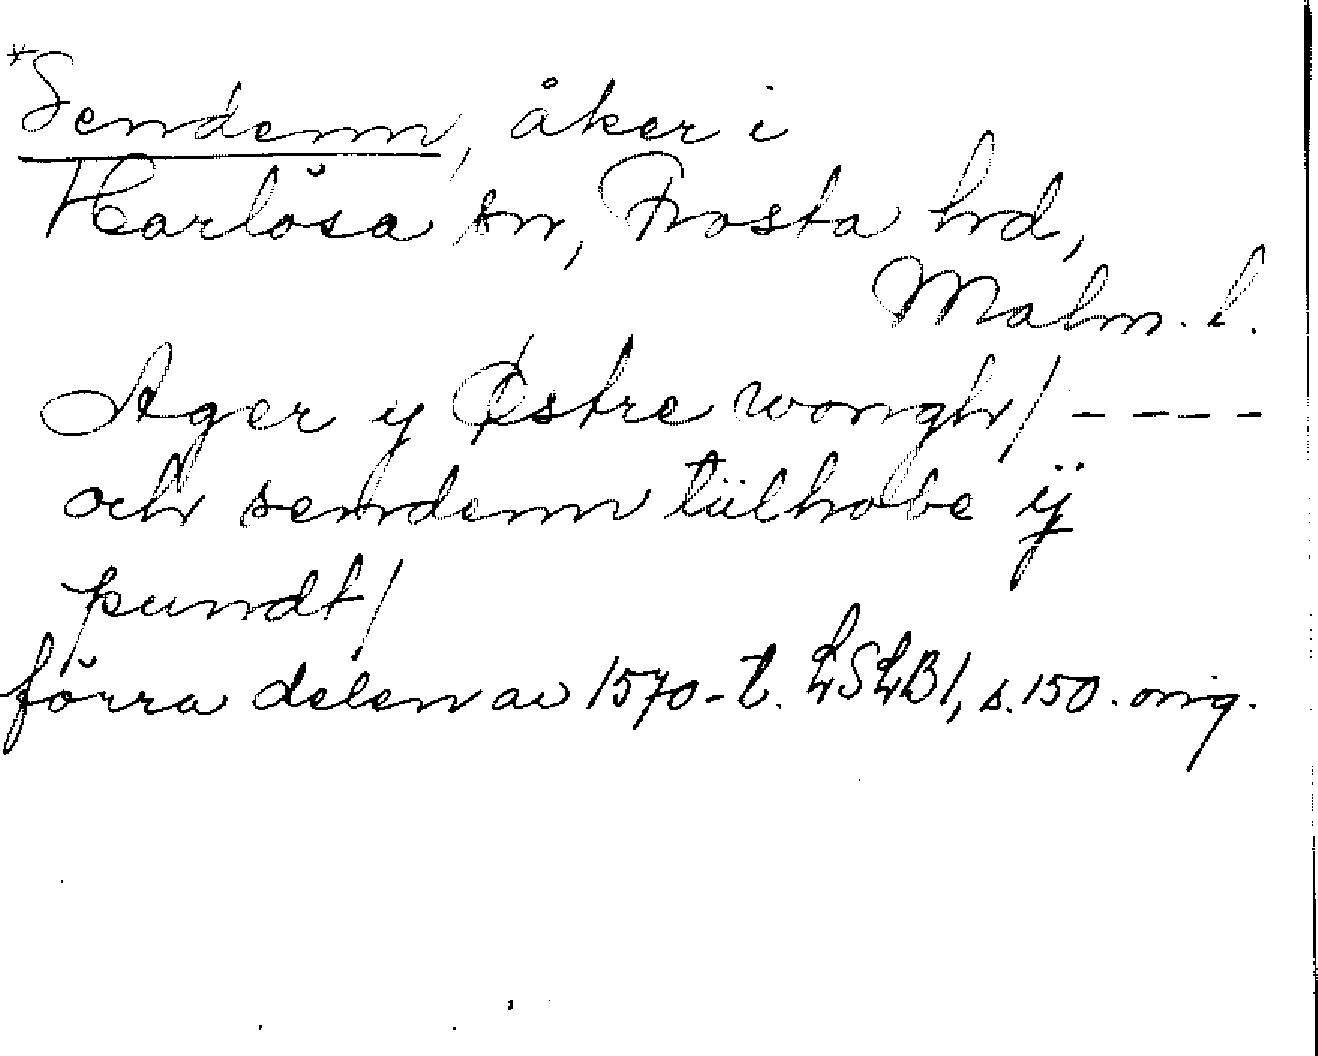 *Sendenn, åker i
Harlösa sn, Frosta hd,
Malm. l.
Ager y Østre wongh/ ----
och sendenn tiilhobe ij
pundt/
förra delen av 1570-t. LSLB1, s. 150. orig.